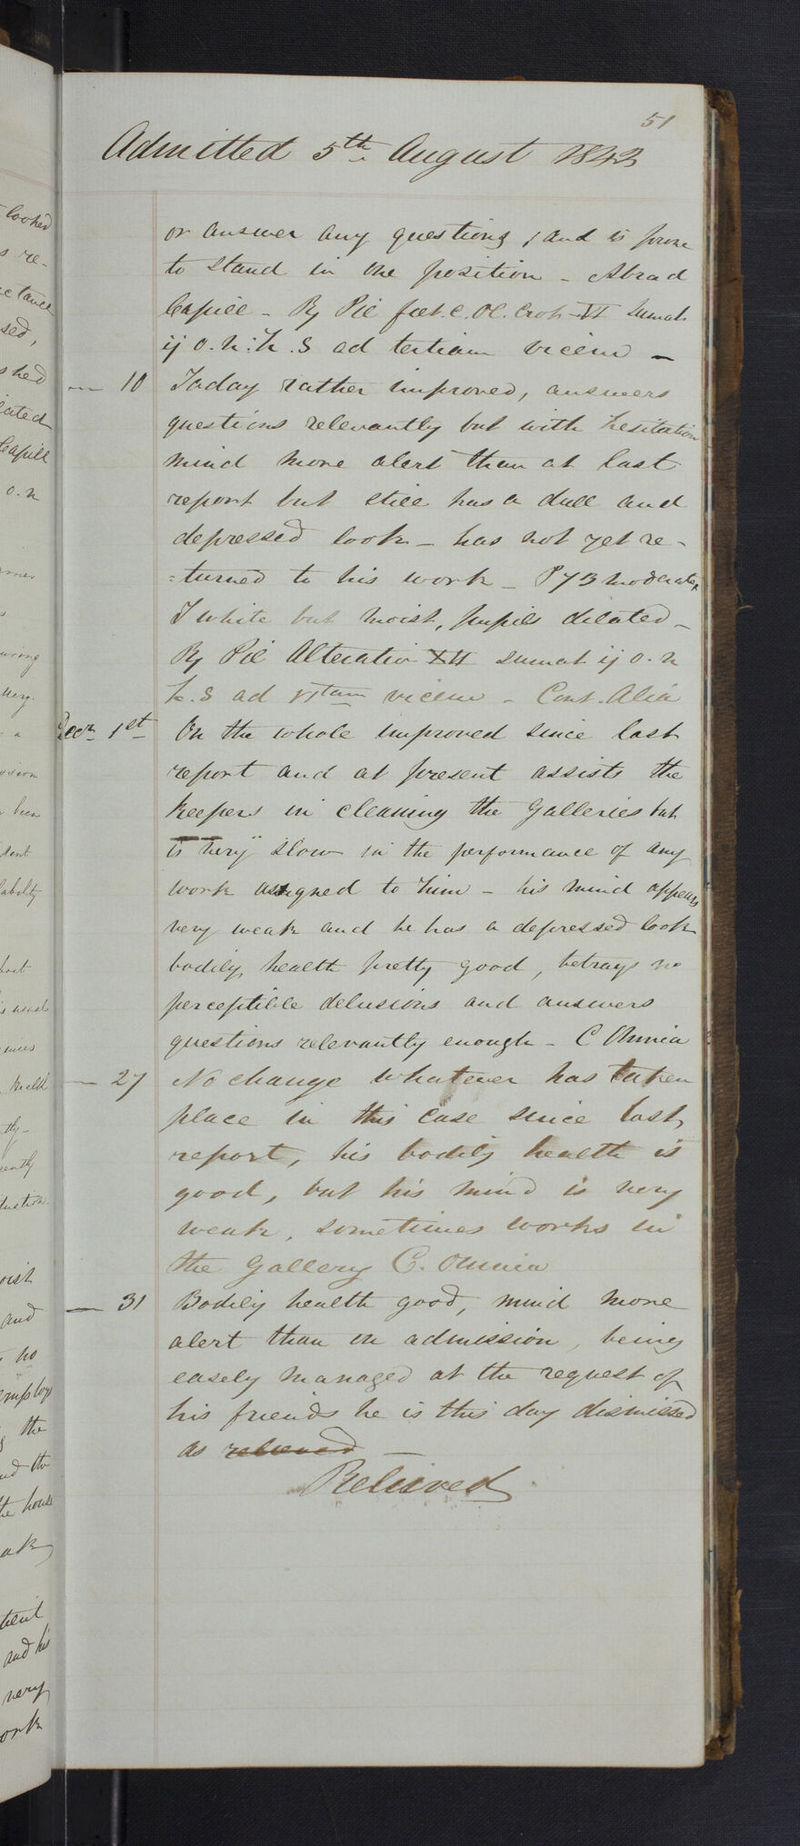 51
Admitted 5th August 1842
or answer any questions, and is prone
to stand in one position - Abrad
Capill - Rx Pil foet. c. Ol. Crot. VI Sumat
ij o. n. h. s ad tertiam vicem -
— 10 Today rather improved, answers
questions relevantly but with hesitation
mind more alert than at last
report but still has a dull and
depressed look - has not yet re-
=turned to his work - P 73 moderate,
T white but moist, pupils dilated -
Rx Pil Alterativ XII Sumat ij o. n
h. s ad VItam vicem - Cont. Alia
Decr 1st On the whole improved since last
report and at present assists the
keepers in cleaning the Galleries but
is very slow in the performance of any
work assigned to him - his mind appears
very weak and he has a depressed look
bodily health pretty good, betrays no
perceptible delusions and answers
questions relevantly enough - C Omnia
— 27 No change whatever has taken
place in this case since last
report, his bodily health is
good, but his mind is very
weak, sometimes works in
the Gallery C. Omnia
— 31 Bodily health good, mind more
alert than on admission, being
easely managed at the request of
his friends he is this day dismissed
as relieved —
Relieved
looked
s re-
sed,
Capill
o. n
been
health
and
no
employ
the
the house
and his
very